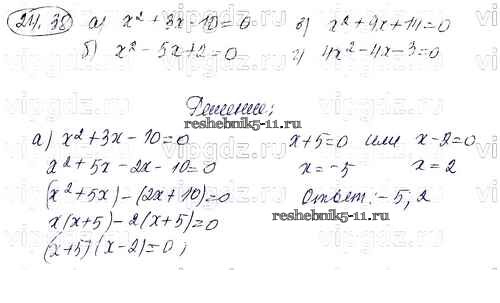 24.38 а) x² + 3x - 10 = 0 в) x² + 9x + 14 = 0
б) x² - 5x + 2 = 0 г) 4x² - 4x - 3 = 0
Решение:
reshebnik5-11.ru
а) x² + 3x - 10 = 0 x + 5 = 0 или x - 2 = 0
x² + 5x - 2x - 10 = 0 x = -5 x = 2
(x² + 5x) - (2x + 10) = 0 Ответ: -5; 2
x(x + 5) - 2(x + 5) = 0 reshebnik5-11.ru
(x + 5)(x - 2) = 0;